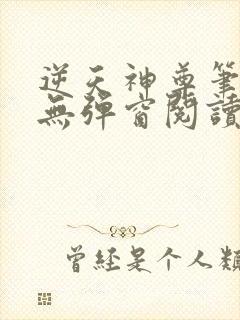 逆天神尊筆
無彈窗閱讀
曾經是个人類